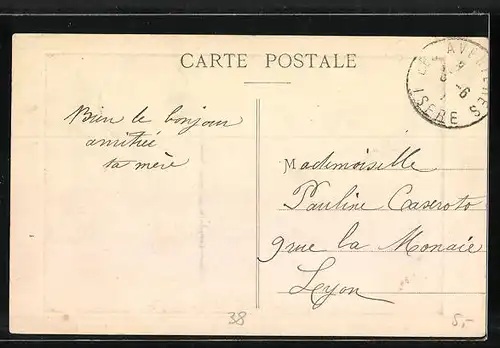 CARTE POSTALE
LES AVENIERES
ISERE
Bien le bonjour
amitiée
ta mère
Mademoiselle
Pauline Caseroto
9 rue la Monaie
Lyon
38
5,-